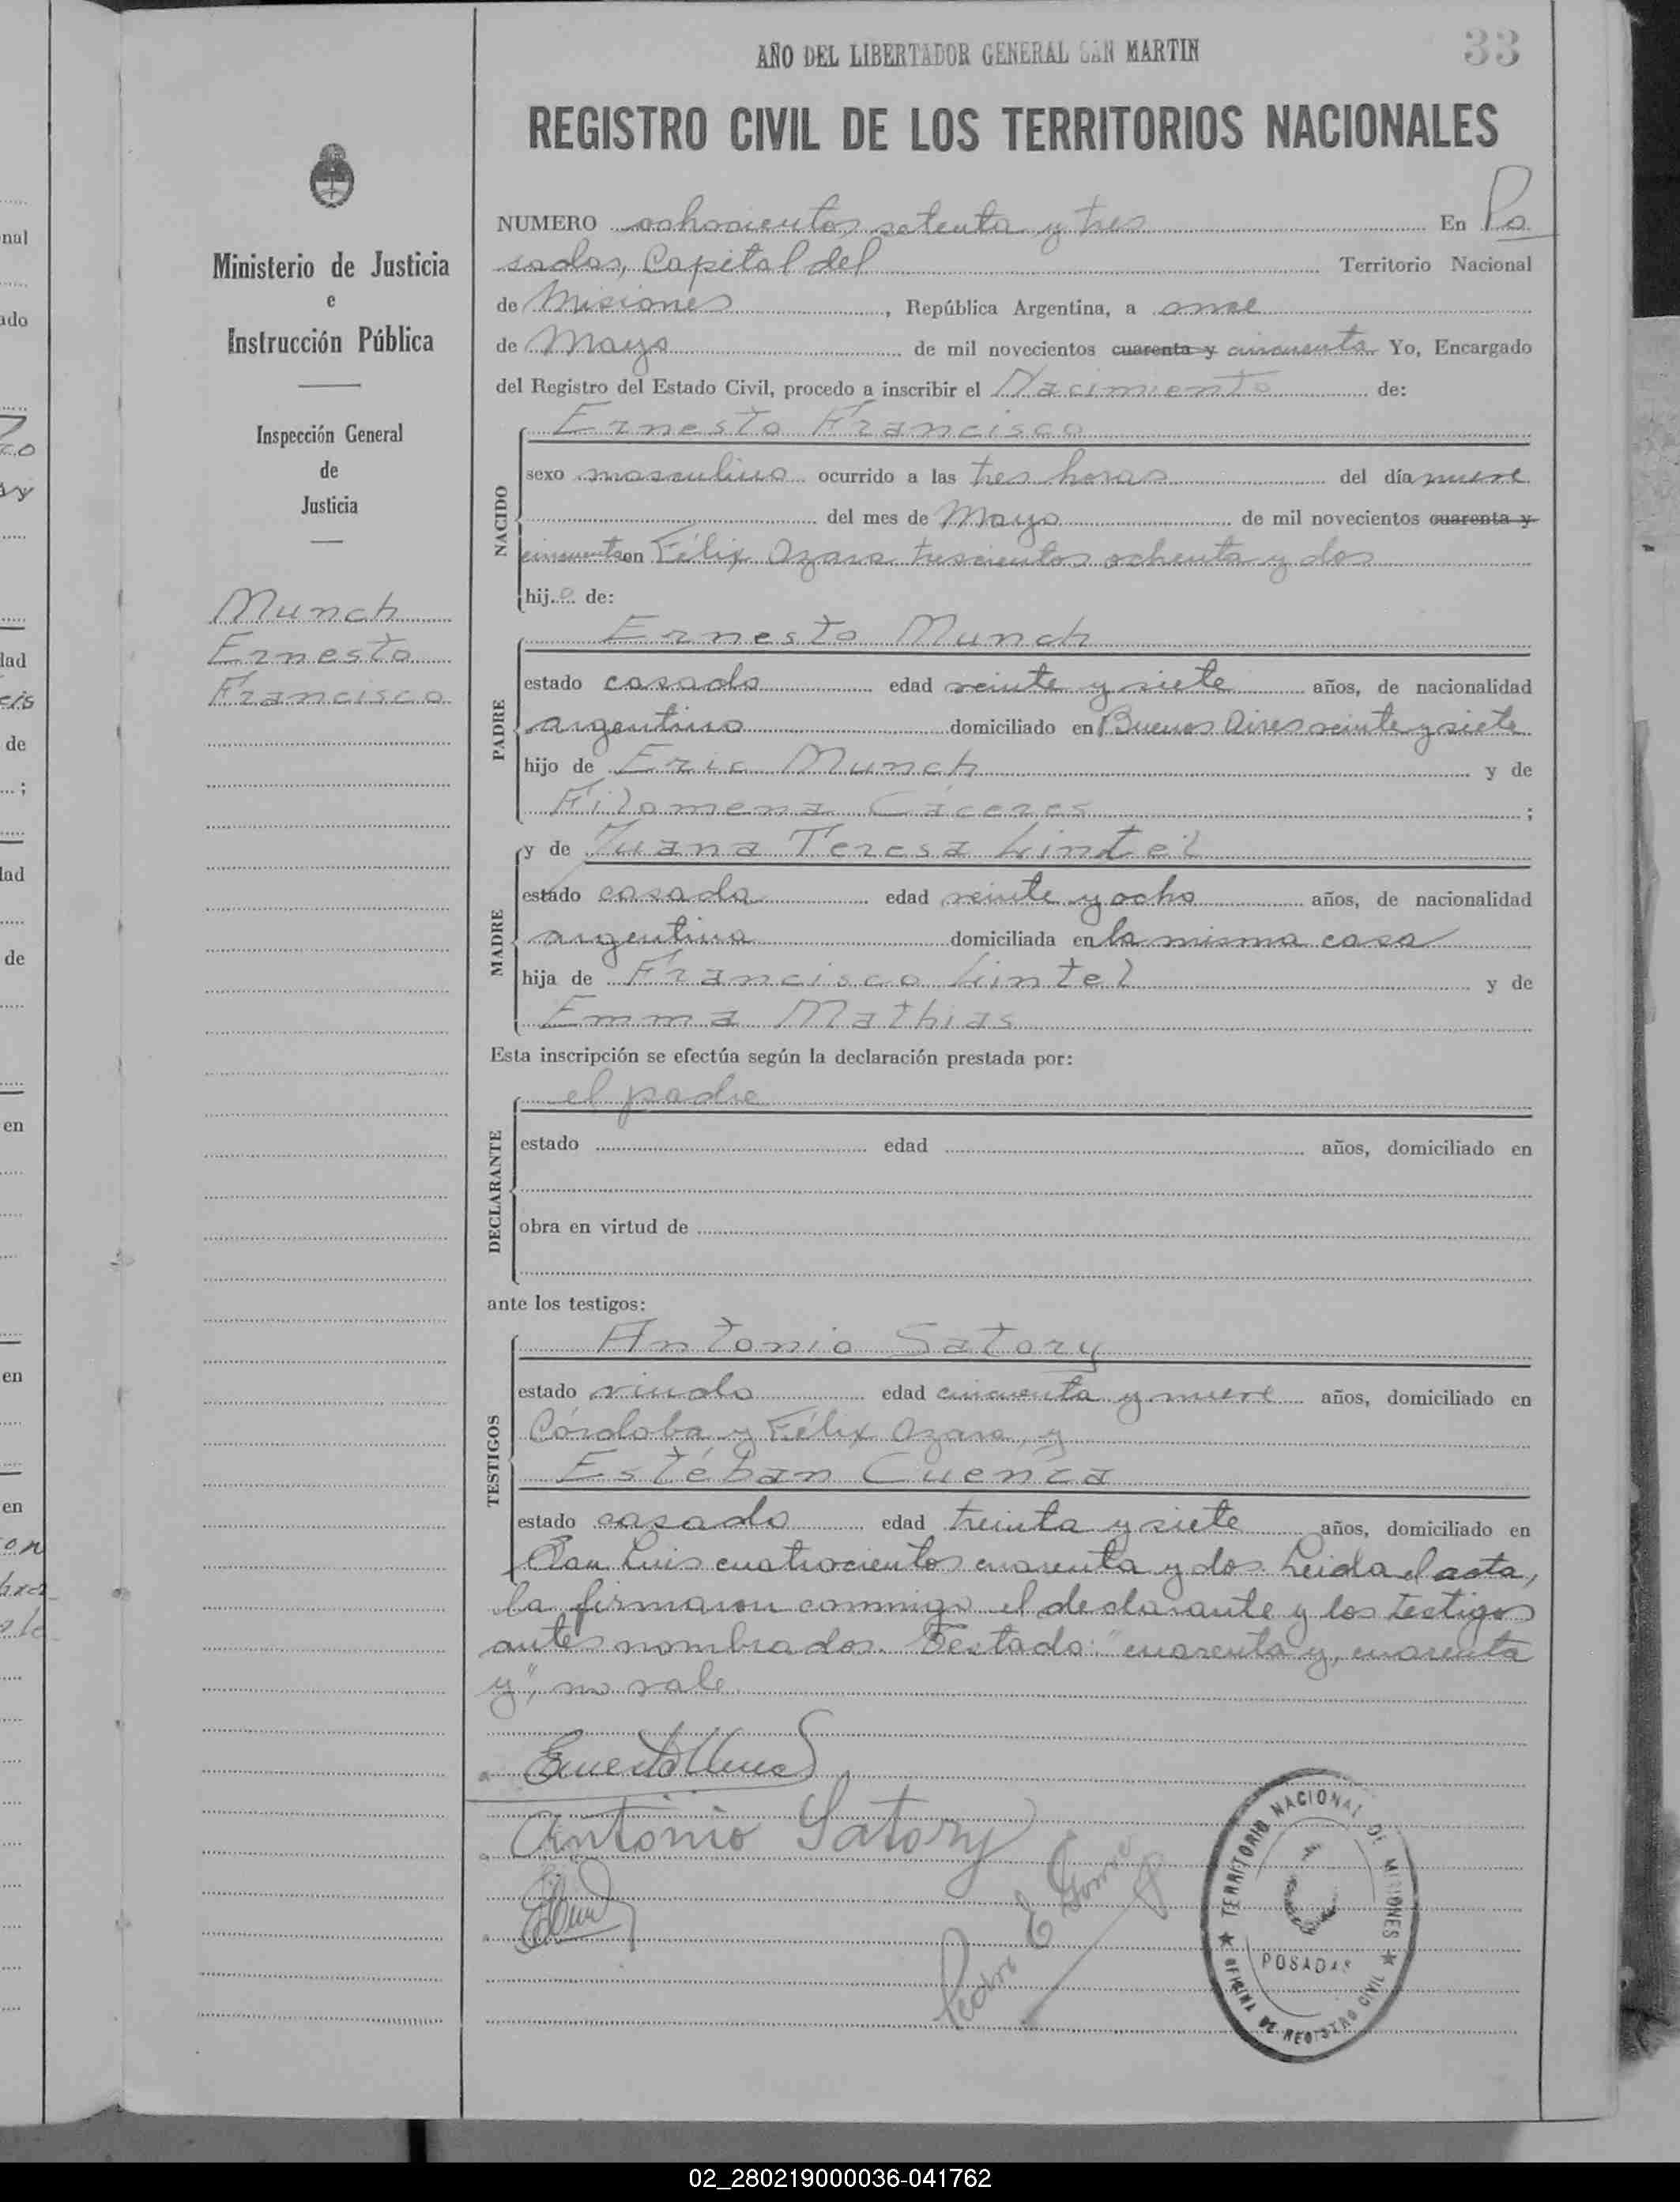 AÑO DEL LIBERTADOR GENERAL SAN MARTIN
33
REGISTRO CIVIL DE LOS TERRITORIOS NACIONALES
Ministerio de Justicia
e
Instrucción Pública
Inspección General
de
Justicia
Munch
Ernesto
Francisco
NUMERO ochocientos setenta y tres En Po
sadas, Capital del Territorio Nacional
de Misiones, República Argentina, a once
de Mayo de mil novecientos cuarenta y cincuenta Yo, Encargado
del Registro del Estado Civil, procedo a inscribir el Nacimiento de:
NACIDO
Ernesto Francisco
sexo masculino ocurrido a las tres horas del día nueve
del mes de Mayo de mil novecientos cuarenta y
cincuenta en Félix Azara trescientos ochenta y dos
hijo de:
PADRE
Ernesto Munch
estado casado edad veinte y siete años, de nacionalidad
argentino domiciliado en Buenos Aires veinte y siete
hijo de Eric Munch y de
Filomena Cáceres ;
MADRE
y de Juana Teresa Lintel
estado casada edad veinte y ocho años, de nacionalidad
argentina domiciliada en la misma casa
hija de Francisco Lintel y de
Emma Mathias
Esta inscripción se efectúa según la declaración prestada por:
DECLARANTE
el padre
estado edad años, domiciliado en
obra en virtud de
ante los testigos:
TESTIGOS
Antonio Satory
estado viudo edad cincuenta y nueve años, domiciliado en
Córdoba y Félix Azara, y
Estéban Cuenca
estado casado edad treinta y siete años, domiciliado en
San Luis cuatrocientos cuarenta y dos. Leida el acta,
la firmaron conmigo el declarante y los testigos
antes nombrados. Testado: "cuarenta y, cuarenta
y", no vale.
Ernesto Munch
Antonio Satory
Pedro E
TERRITORIO NACIONAL DE MISIONES
POSADAS
OFICINA DE REGISTRO CIVIL
nal
ado
dad
cis
de
;
dad
de
en
en
en
on
02_280219000036-041762